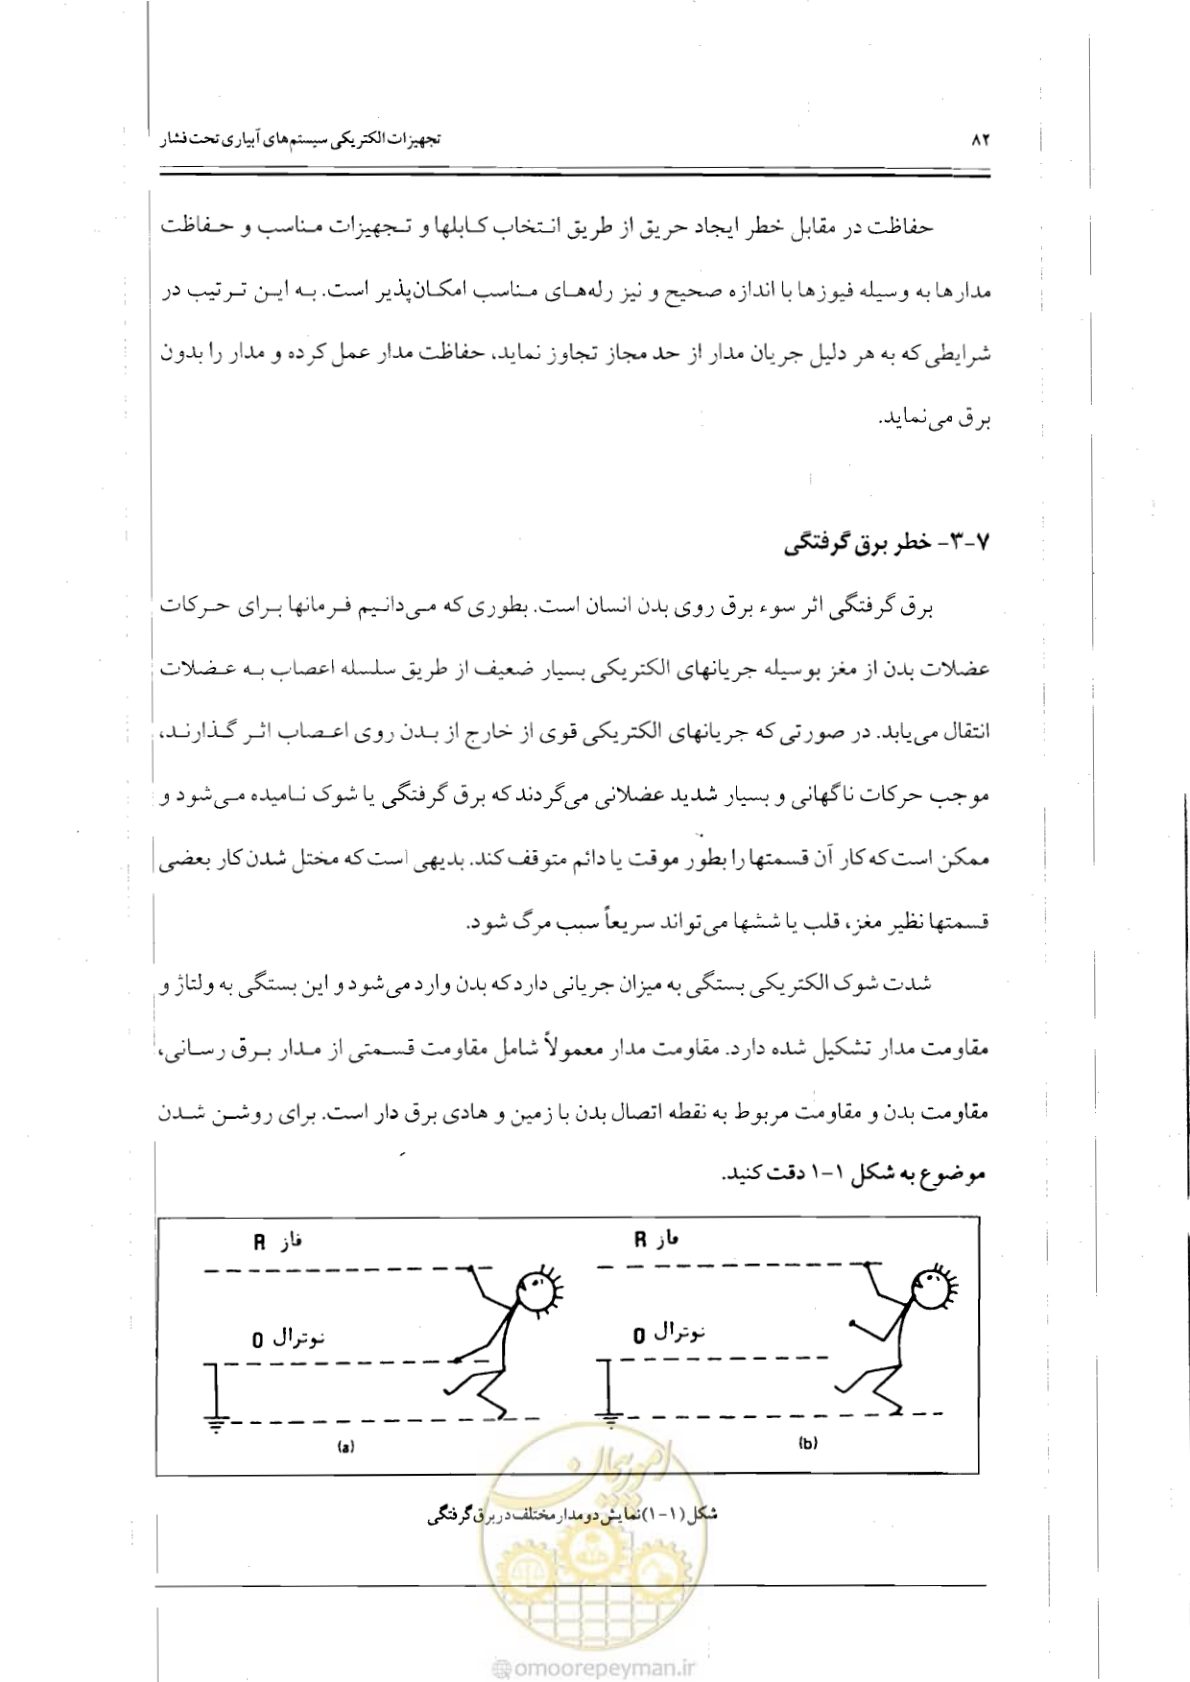 ۸۲
تجهیزات الکتریکی سیستم‌های آبیاری تحت فشار
حفاظت در مقابل خطر ایجاد حریق از طریق انتخاب کابلها و تجهیزات مناسب و حفاظت
مدارها به وسیله فیوزها با اندازه صحیح و نیز رله‌های مناسب امکان‌پذیر است. به این ترتیب در
شرایطی که به هر دلیل جریان مدار از حد مجاز تجاوز نماید، حفاظت مدار عمل کرده و مدار را بدون
برق می‌نماید.
۳-۷- خطر برق گرفتگی
برق گرفتگی اثر سوء برق روی بدن انسان است. بطوری که می‌دانیم فرمانها برای حرکات
عضلات بدن از مغز بوسیله جریانهای الکتریکی بسیار ضعیف از طریق سلسله اعصاب به عضلات
انتقال می‌یابد. در صورتی که جریانهای الکتریکی قوی از خارج از بدن روی اعصاب اثر گذارند،
موجب حرکات ناگهانی و بسیار شدید عضلانی می‌گردند که برق گرفتگی یا شوک نامیده می‌شود و
ممکن است که کار آن قسمتها را بطور موقت یا دائم متوقف کند. بدیهی است که مختل شدن کار بعضی
قسمتها نظیر مغز، قلب یا ششها می‌تواند سریعاً سبب مرگ شود.
شدت شوک الکتریکی بستگی به میزان جریانی دارد که بدن وارد می‌شود و این بستگی به ولتاژ و
مقاومت مدار تشکیل شده دارد. مقاومت مدار معمولاً شامل مقاومت قسمتی از مدار برق رسانی،
مقاومت بدن و مقاومت مربوط به نقطه اتصال بدن با زمین و هادی برق دار است. برای روشن شدن
موضوع به شکل ۱-۱ دقت کنید.
فاز R
فاز R
نوترال 0
نوترال 0
(b)
(a)
شکل (۱-۱) نمایش دو مدار مختلف در برق گرفتگی
امور پیمان
@omoorepeyman.ir